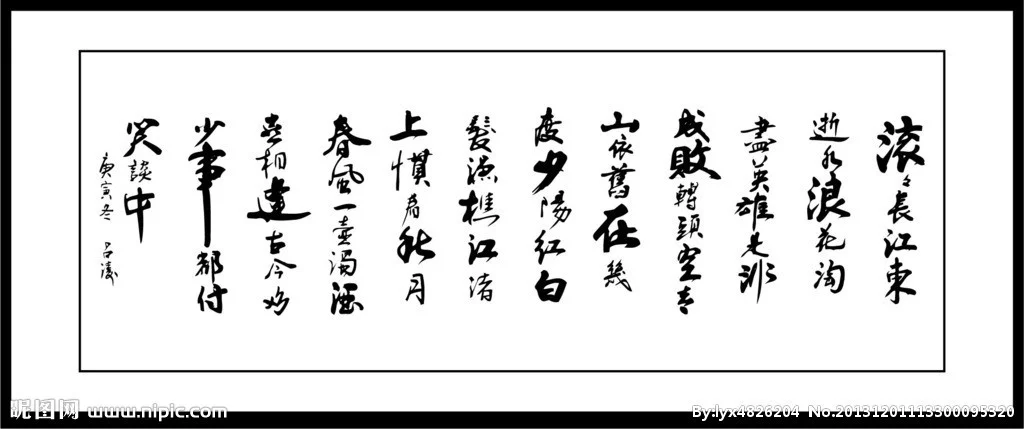 滚々長江東
逝水浪花淘
盡英雄是非
成敗轉頭空青
山依舊在幾
度夕陽红白
髮漁樵江渚
上慣看秋月
春風一壺濁酒
喜相逢古今多
少事都付
笑談中
庚寅冬
昵图网 www.nipic.com
By:lyx4826204 No.20131201113300095320